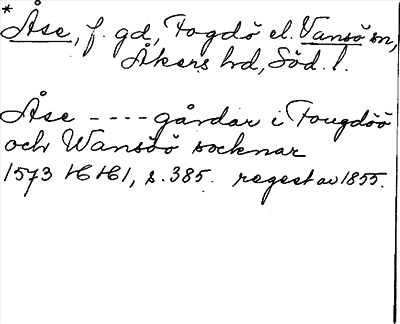 * Åse, f. gd, Fogdö el. Vansö sn,
Åkers hd, Söd. l.
Åse ---- gårdar i Fougdöö
och Wansöö socknar
1573 HH1, s. 385. regest av 1855.